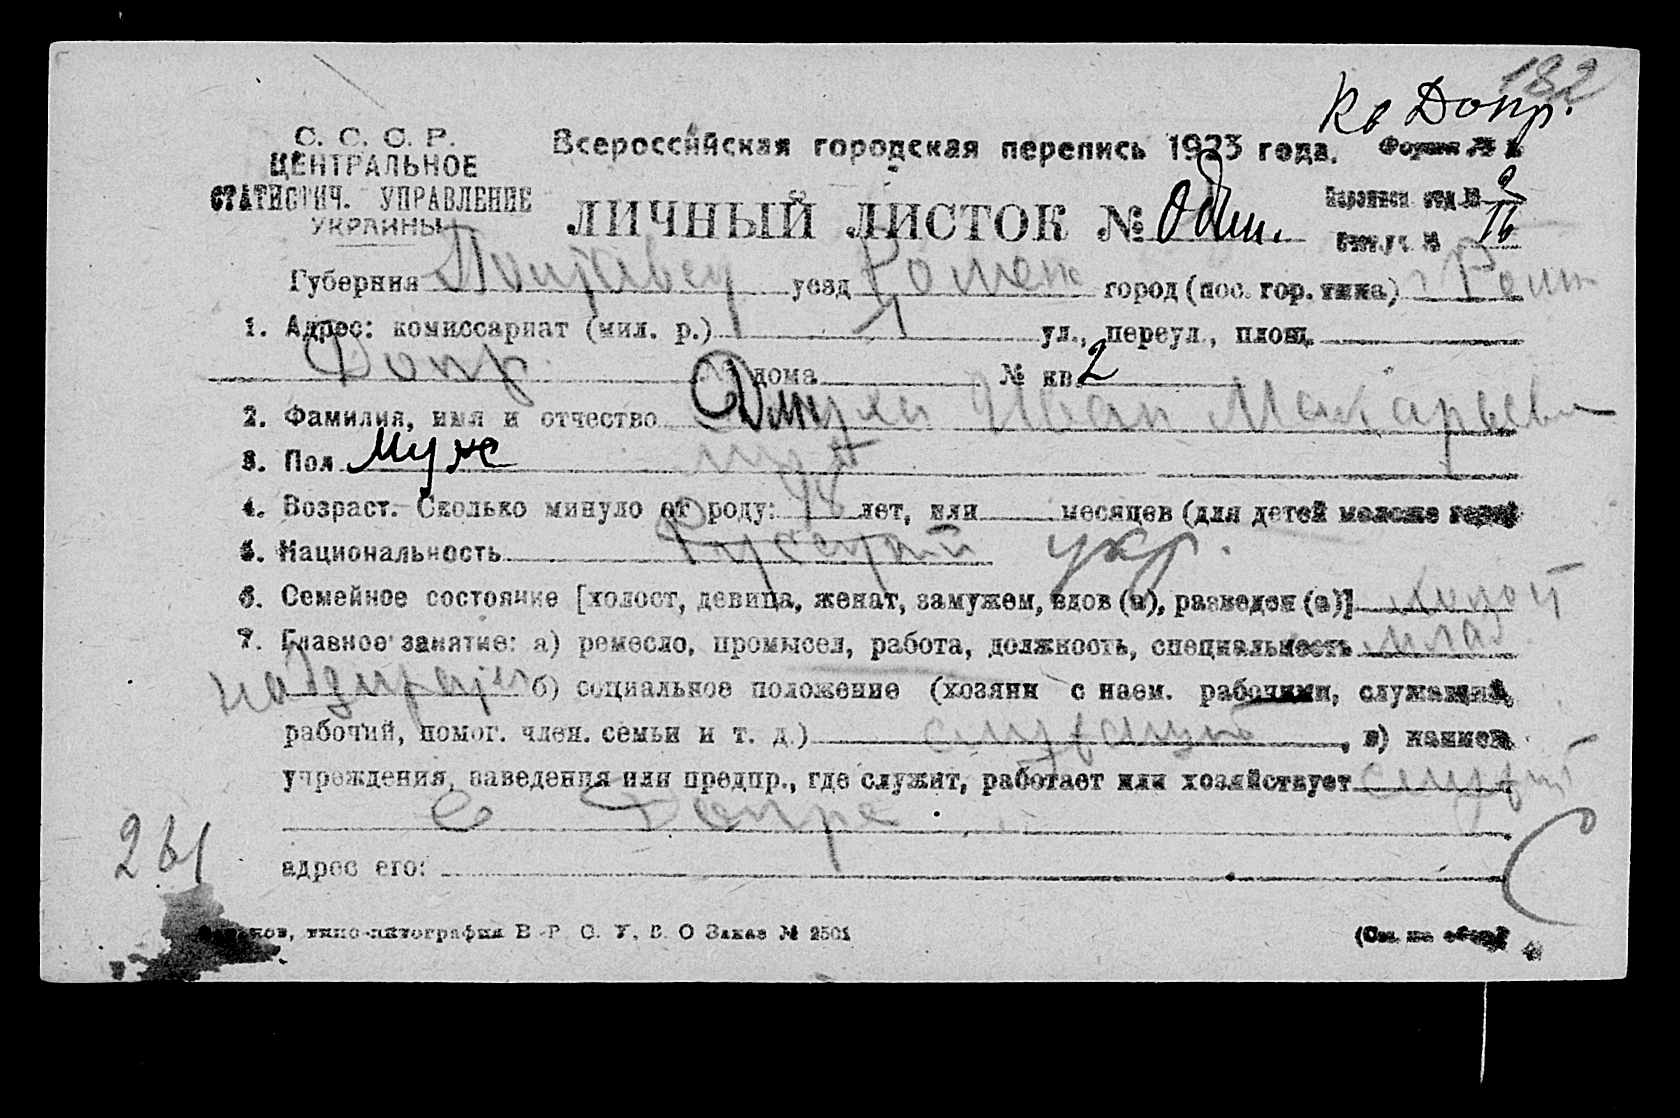 132
Кв Допр.
С. С. С. Р.
ЦЕНТРАЛЬНОЕ
СТАТИСТИЧ. УПРАВЛЕНИЕ
УКРАИНЫ
Всероссийская городская перепись 1923 года.
ЛИЧНЫЙ ЛИСТОК № Один.
Губерния Полтавск уезд Ромен город (пос. гор. типа)
1. Адрес: комиссариат (мил. р.) ул., переул., площ.
Допр. № дома № кв. 2
2. Фамилия, имя и отчество Иван Макарьев
3. Пол муж
4. Возраст. Сколько минуло от роду: 48 лет, или месяцев (для детей моложе
5. Национальность Русский укр.
6. Семейное состояние [холост, девица, женат, замужем, вдов (а), разведен (а)] холост
7. Главное занятие: а) ремесло, промысел, работа, должность, специальность млад
надзиратель б) социальное положение (хозяин с наем. рабочими, служащий,
рабочий, помог. член. семьи и т. д.) служащий, в) наимен.
учреждения, заведения или предпр., где служит, работает или хозяйствует служит
в Допре
адрес его:
261
типо-литография В Р С. У. В. О Заказ № 2501
(См. на обор.)